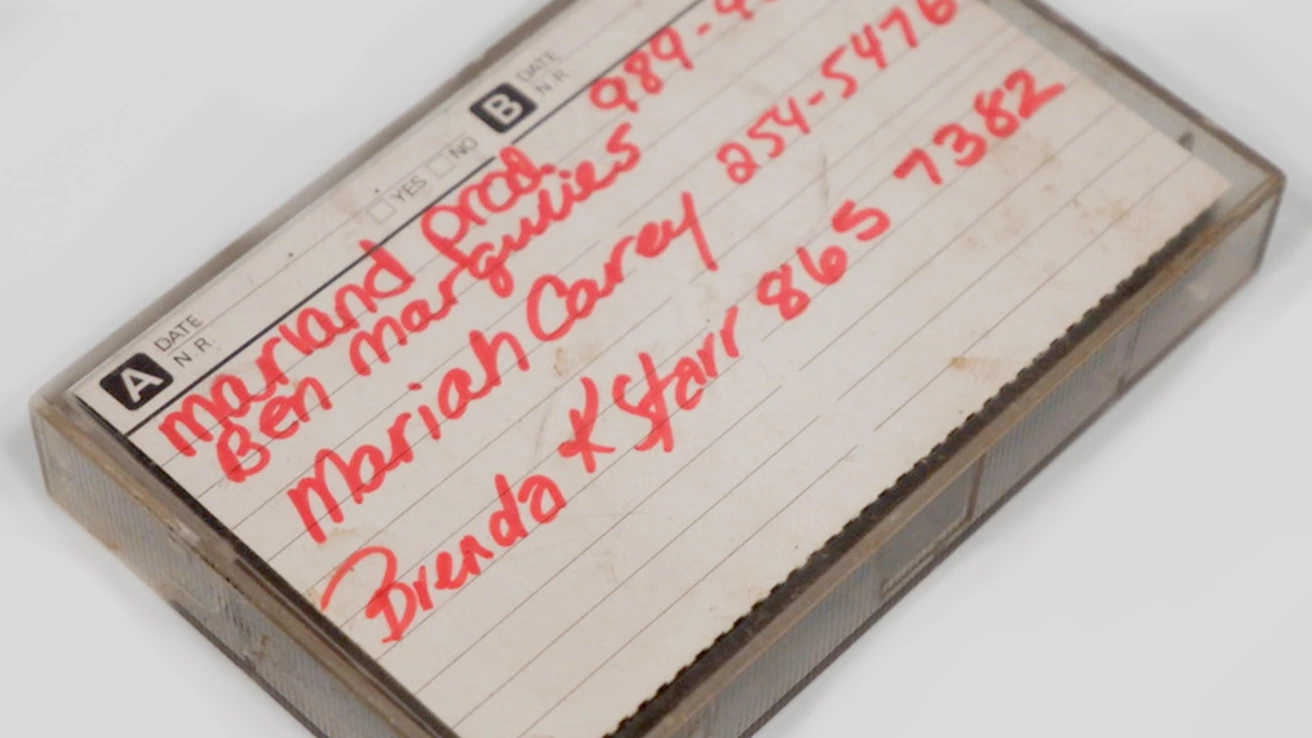 A DATE N.R. YES NO B DATE N.R.
Marland prod. 989-
Ben Margulies
Mariah Carey 254-5476
Brenda K Starr 865 7382